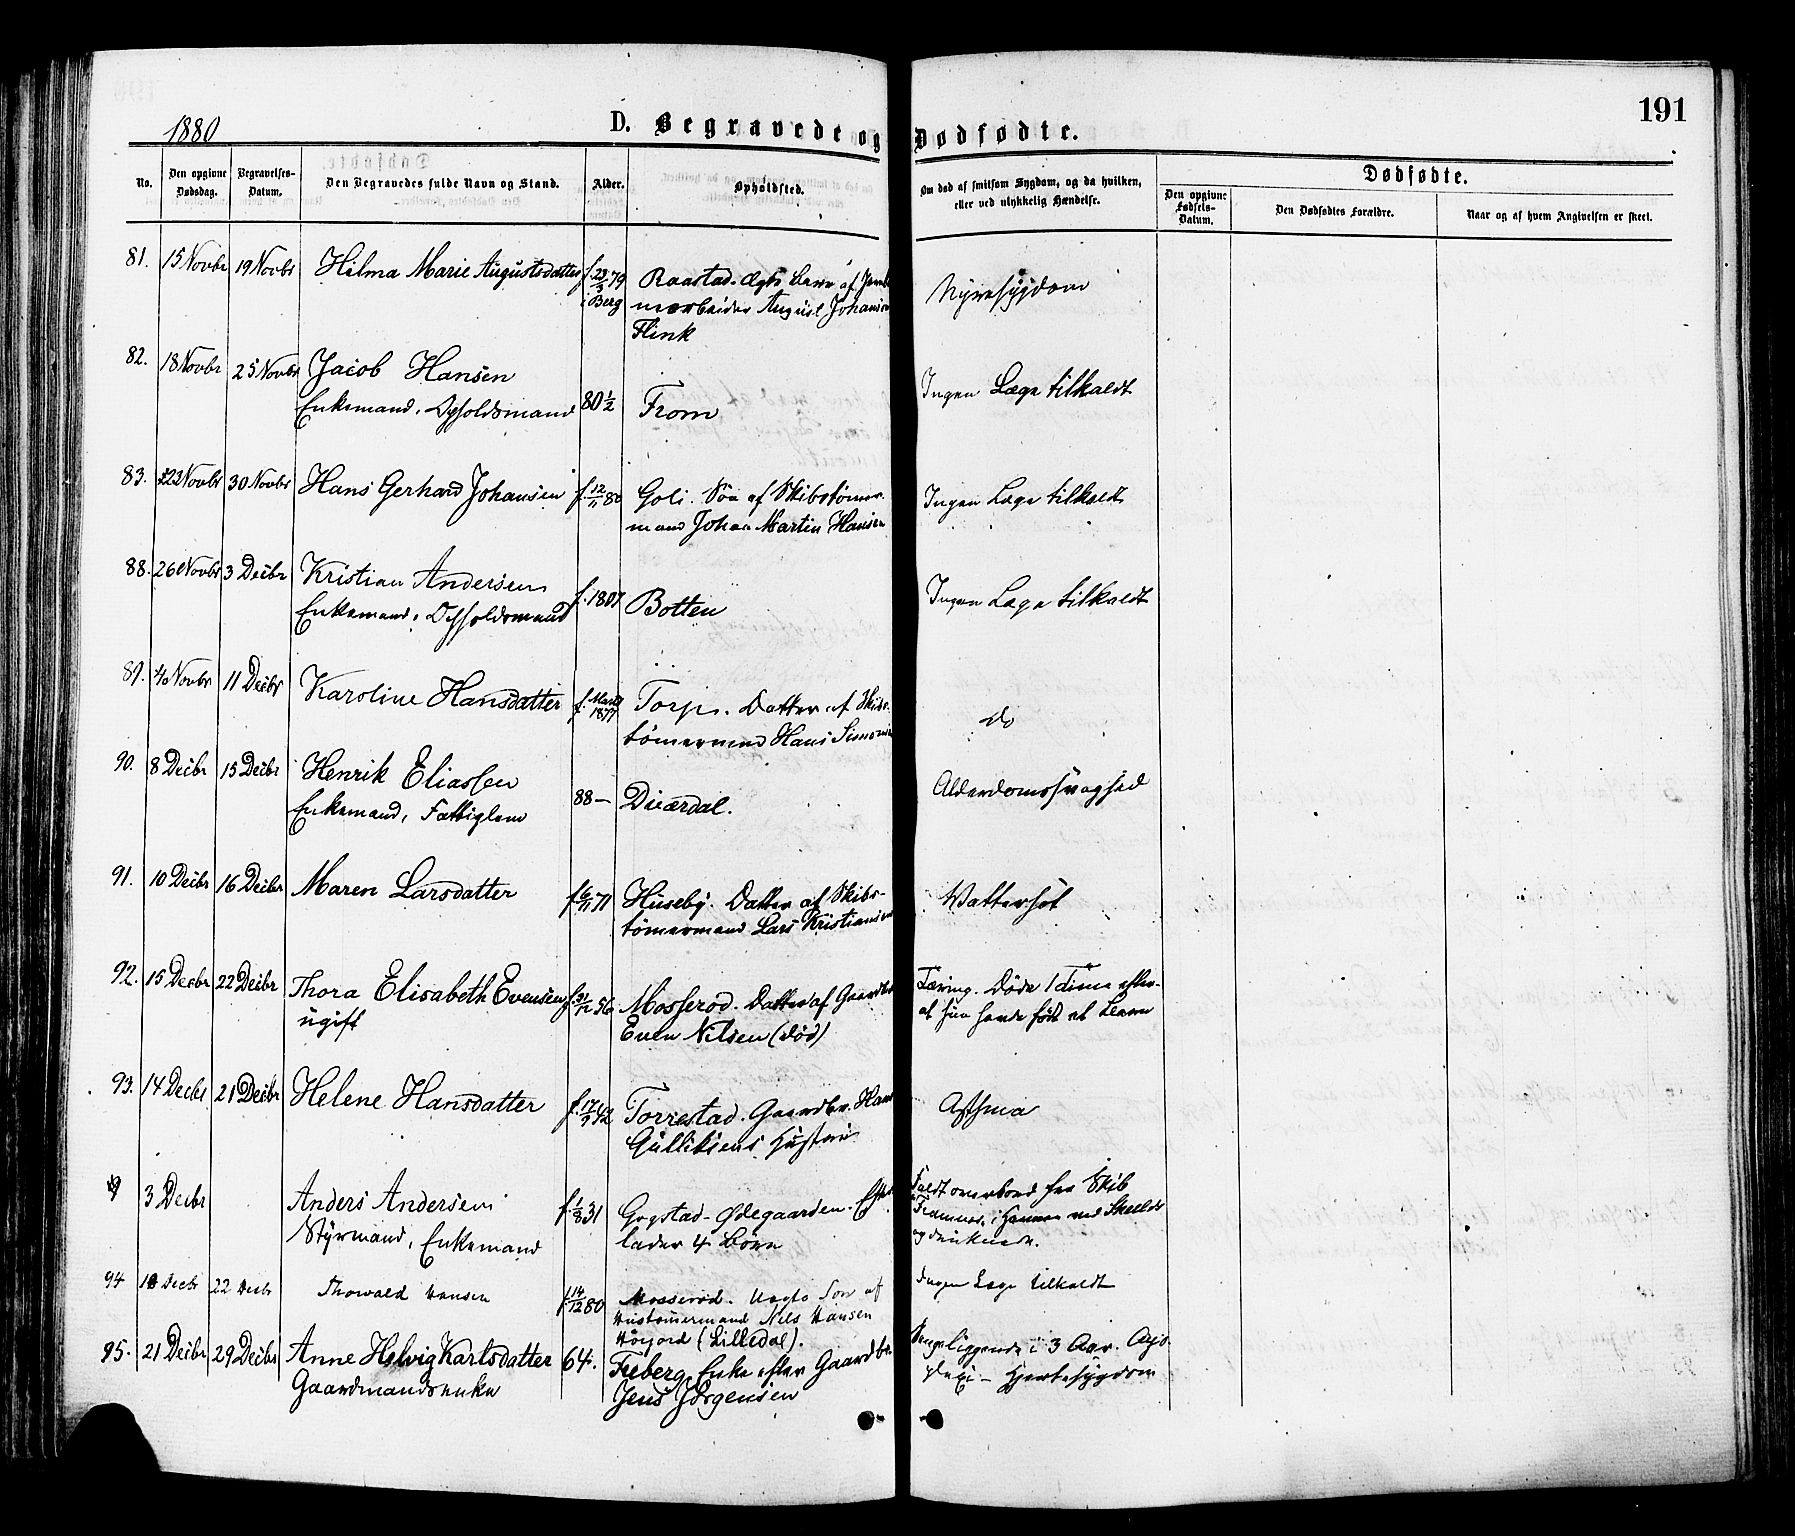 191
1880
D. Begravede og Dødfødte.
No.
Den opgivne Dødsdag.
Begravelses-Datum.
Den Begravedes fulde Navn og Stand.
Alder.
Opholdsted.
Om død af smitsom Sygdom, og da hvilken, eller ved ulykkelig Hændelse.
Dødfødte.
Den opgivne Fødsels-Datum.
Den Dødfødtes Forældre.
Naar og af hvem Angivelsen er skeet.
81. 15 Novbr 19 Novbr Hilma Marie Augustsdatter f. 23/3 79 i Berg Raastad. Ægte Barn af
August Johansen
Flink
Nyresygdom
82. 18 Novbr 25 Novbr Jacob Hansen
Enkemand. 80 1/2 From
Ingen Læge tilkaldt
83. 22 Novbr 30 Novbr Hans Gerhard Johansen f. 12/11 80 Goli. Søn af Skibstømer-
mand Johan Martin Hansen
Ingen Læge tilkaldt
88. 26 Novbr 3 Decbr Kristian Andersen
Enkemand. f. 1807 Botten
Ingen Læge tilkaldt
89. Novbr 11 Decbr Karoline Hansdatter f. Marts 1877 Torp. Datter af Skibs-
tømermand Hans Simonsen
do
90. 8 Decbr 15 Decbr Henrik Eliassen
Enkemand, Fattiglem 88 —
Alderdomssvaghed
91. 10 Decbr 16 Decbr Maren Larsdatter f. 6/11 71 Huseby. Datter af Skibs-
tømermand Lars Kristiansen
Vattersot
92. 15 Decbr 22 Decbr Thora Elisabeth Evensen
ugift f. 31/12 56 Mosserød. Datter af Gaardbr
Even Nilsen (død)
Tæring. Døde 1 Time efter-
at hun havde født et Barn
93. 14 Decbr 21 Decbr Helene Hansdatter f. 17/9 42 Torrestad. Gaardbr. Hans
Gulliksens Hustru
Asthma
3 Decbr Anders Andersen
Styrmand, Enkemand f. 1/8 31 Gogstad-Ødegaarden. Efter-
lader 4 Børn
Faldt overbord fra Skib
Framnæs, i Havnen ved Skields
og druknede.
94 18 Decbr 22 Decbr Thorvald Hansen f. 14/12 80 Mosserød. Uægte Søn af
Hustømermand Nils Hansen
Høyjord (Lilledal).
Ingen Læge tilkaldt
95. 21 Decbr 29 Decbr Anne Helvig Karlsdatter
Gaardmandsenke 64. Freberg Enke efter Gaardbr.
Jens Jörgensen
Sengeliggende i 3 Aar. Apo-
plexi – Hjertesygdom